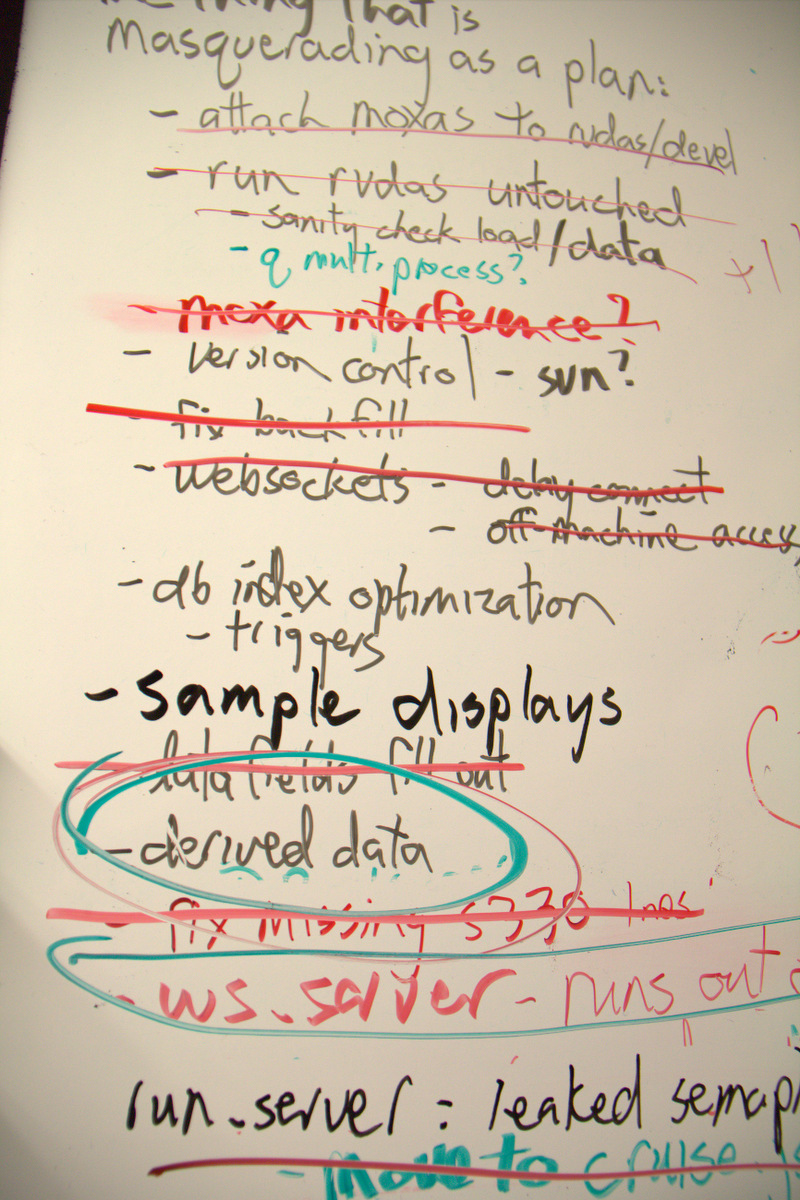 thing that is
masquerading as a plan:
- attach moxas to rvdas/devel
- run rvdas untouched
- sanity check load/data
- q multiprocess?
+1
- moxa interference?
- version control - svn?
- fix backfill
- websockets - delay connect
- off-machine access
- db index optimization
- triggers
- sample displays
data fields fill out
- derived data
- fix missing s330
- ws.server - runs out
run.server: leaked semap
- move to cruise